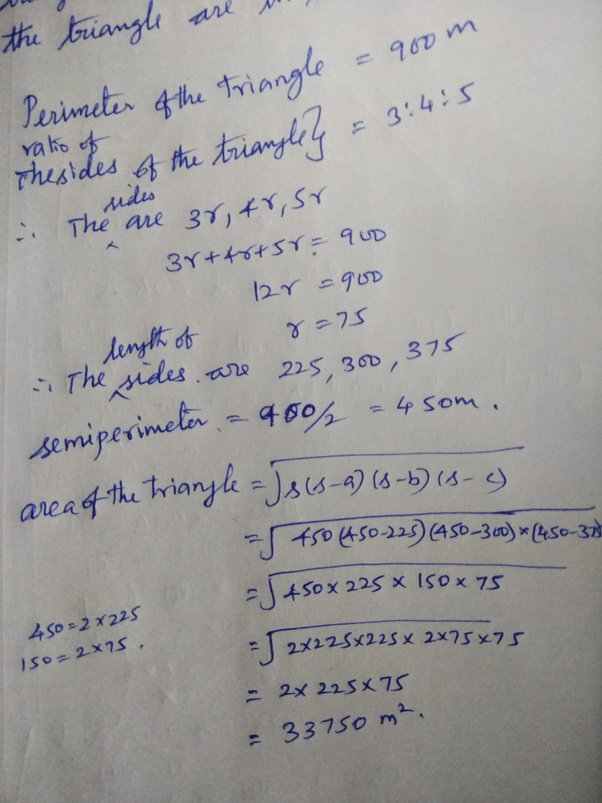 the triangle are
Perimeter of the triangle = 900 m
ratio of
The sides of the triangle} = 3:4:5
sides
∴ The ^ are 3r, 4r, 5r
3r+4r+5r = 900
12r = 900
r = 75
length of
∴ The ^ sides are 225, 300, 375
semiperimeter = 900/2 = 450m.
area of the triangle = √s(s-a)(s-b)(s-c)
= √450(450-225)(450-300)×(450-375
= √450×225×150×75
450=2×225
150=2×75.
= √2×225×225×2×75×75
= 2×225×75
= 33750 m².